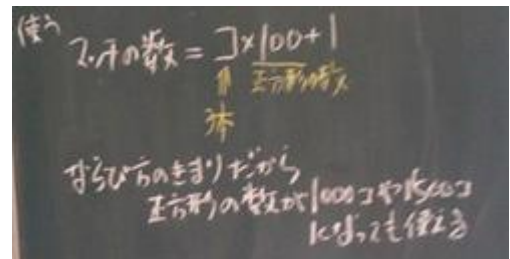 使う
マッチの数=コ×100+1
正方形の数
3本
ならび方のきまりだから
正方形の数が1000コや1500コ
になっても使える